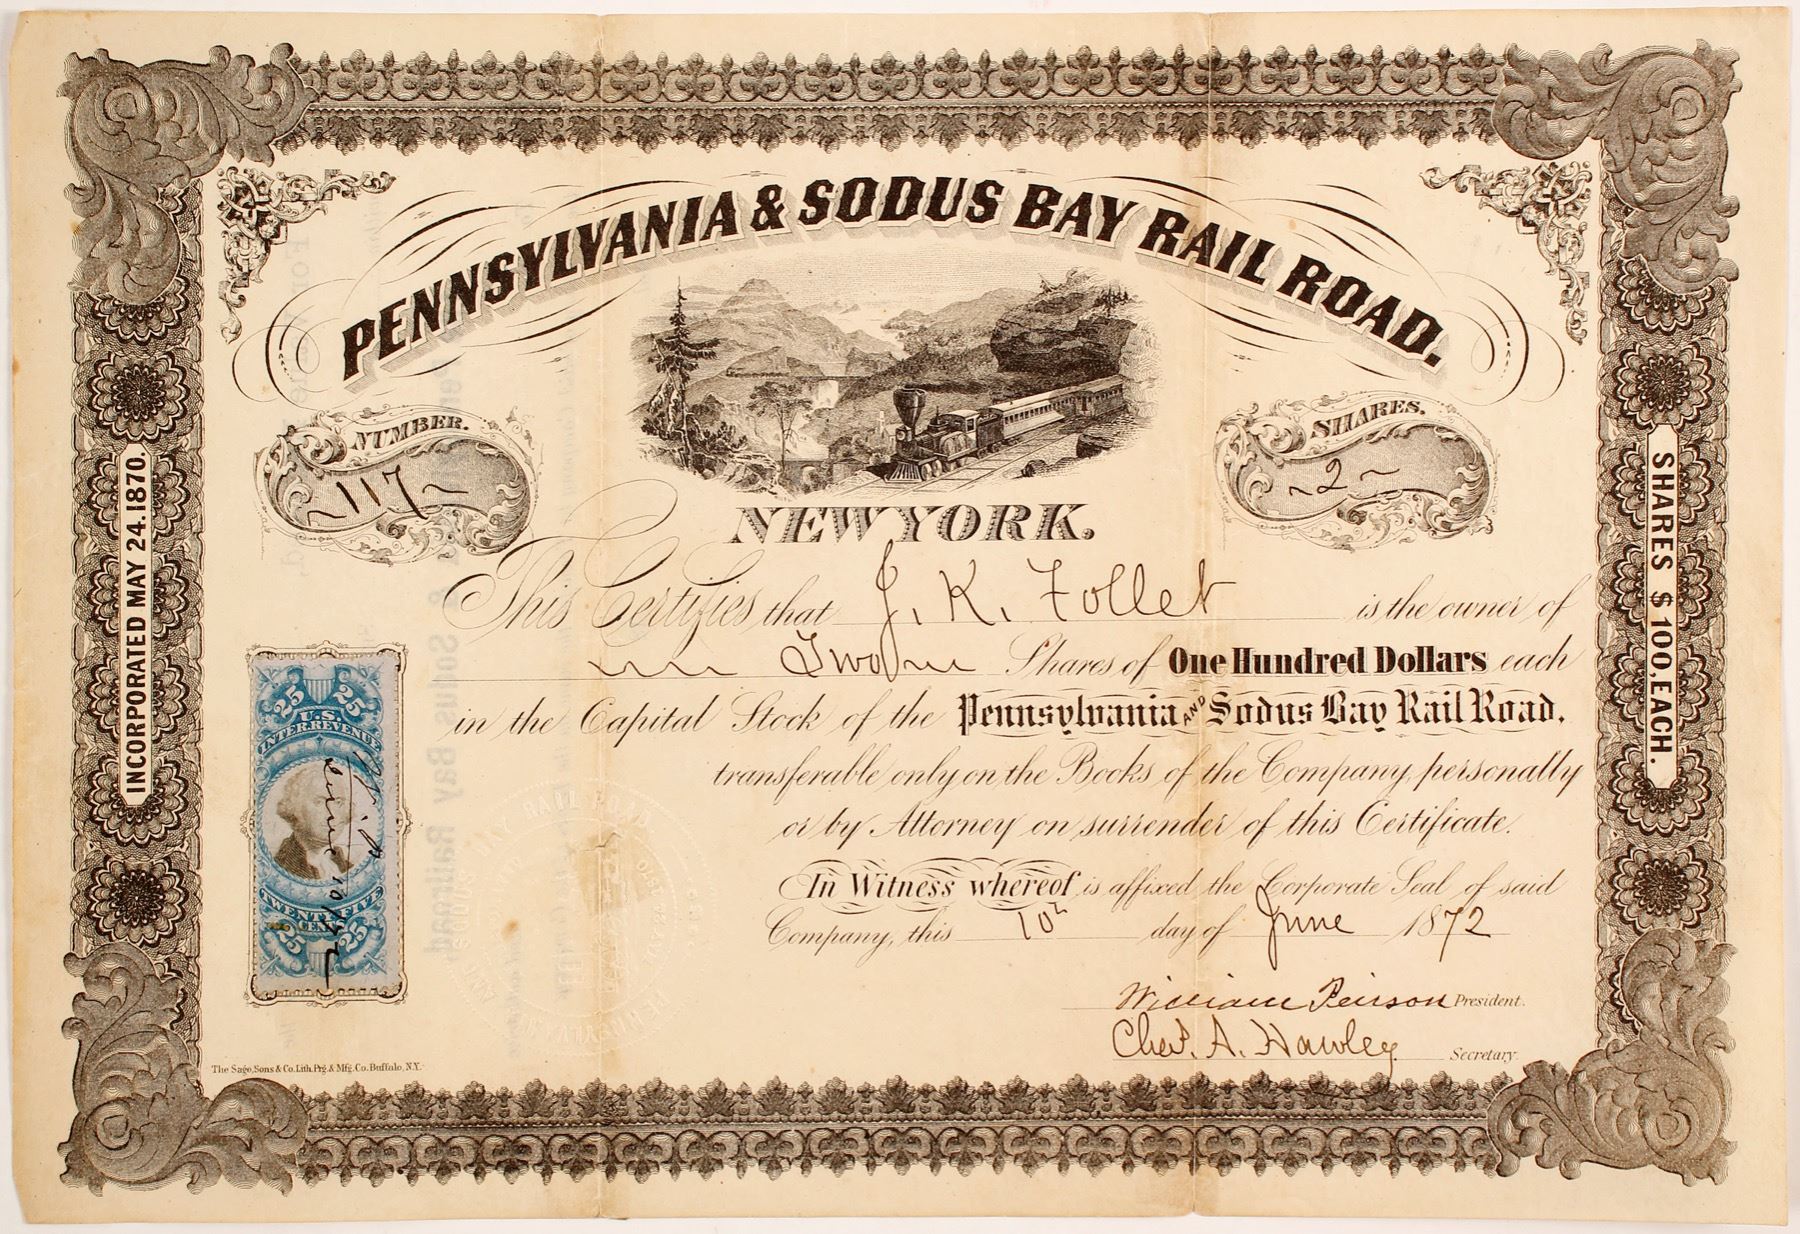 PENNSYLVANIA & SODUS BAY RAIL ROAD.
NUMBER.
117
SHARES.
2
NEW YORK.
INCORPORATED MAY 24. 1870.
SHARES $100, EACH.
This Certifies that J. K. Follet is the owner of
Two Shares of One Hundred Dollars each
in the Capital Stock of the Pennsylvania AND Sodus Bay Rail Road,
transferable only on the Books of the Company personally
or by Attorney on surrender of this Certificate.
In Witness whereof is affixed the Corporate Seal of said
Company, this 10th day of June 1872
William Peirson President.
Chas. A. Hawley Secretary.
25 25
U.S.
INTER. REVENUE
TWENTY FIVE
CENTS
25 25
The Sage, Sons & Co. Lith. Prg. & Mfg. Co. Buffalo, N.Y.